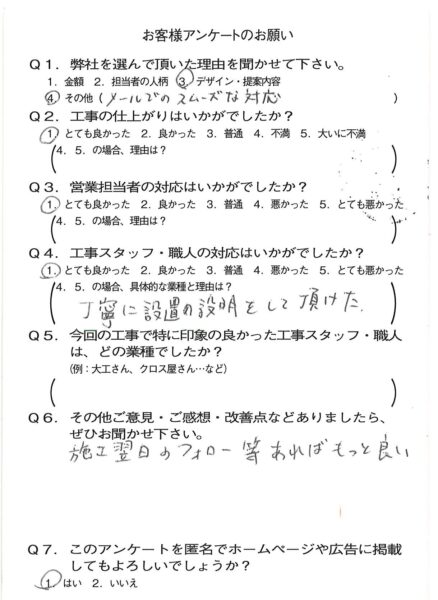 お客様アンケートのお願い
Q1. 弊社を選んで頂いた理由を聞かせて下さい。
1. 金額 2. 担当者の人柄 ③ デザイン・提案内容
④ その他(メールでのスムーズな対応)
Q2. 工事の仕上がりはいかがでしたか?
① とても良かった 2. 良かった 3. 普通 4. 不満 5. 大いに不満
(4. 5. の場合、理由は?)
Q3. 営業担当者の対応はいかがでしたか?
① とても良かった 2. 良かった 3. 普通 4. 悪かった 5. とても悪かった
(4. 5. の場合、理由は?)
Q4. 工事スタッフ・職人の対応はいかがでしたか?
① とても良かった 2. 良かった 3. 普通 4. 悪かった 5. とても悪かった
(4. 5. の場合、具体的な業種と理由は?
丁寧に設置の説明をして頂けた.)
Q5. 今回の工事で特に印象の良かった工事スタッフ・職人
は、どの業種でしたか?
(例:大工さん、クロス屋さん…など)
( )
Q6. その他ご意見・ご感想・改善点などありましたら、
ぜひお聞かせ下さい。
施工翌日のフォロー等あればもっと良い
Q7. このアンケートを匿名でホームページや広告に掲載
してもよろしいでしょうか?
① はい 2. いいえ